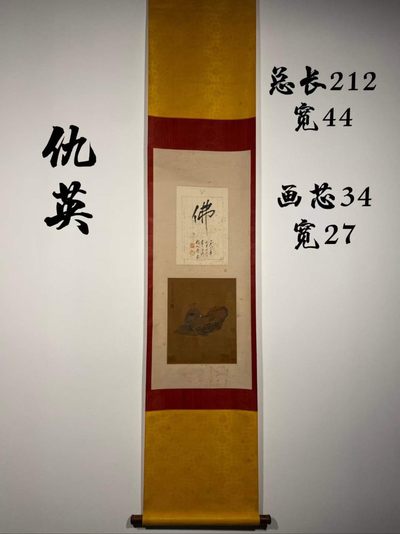 仇英
总长212
宽44
画芯34
宽27
佛